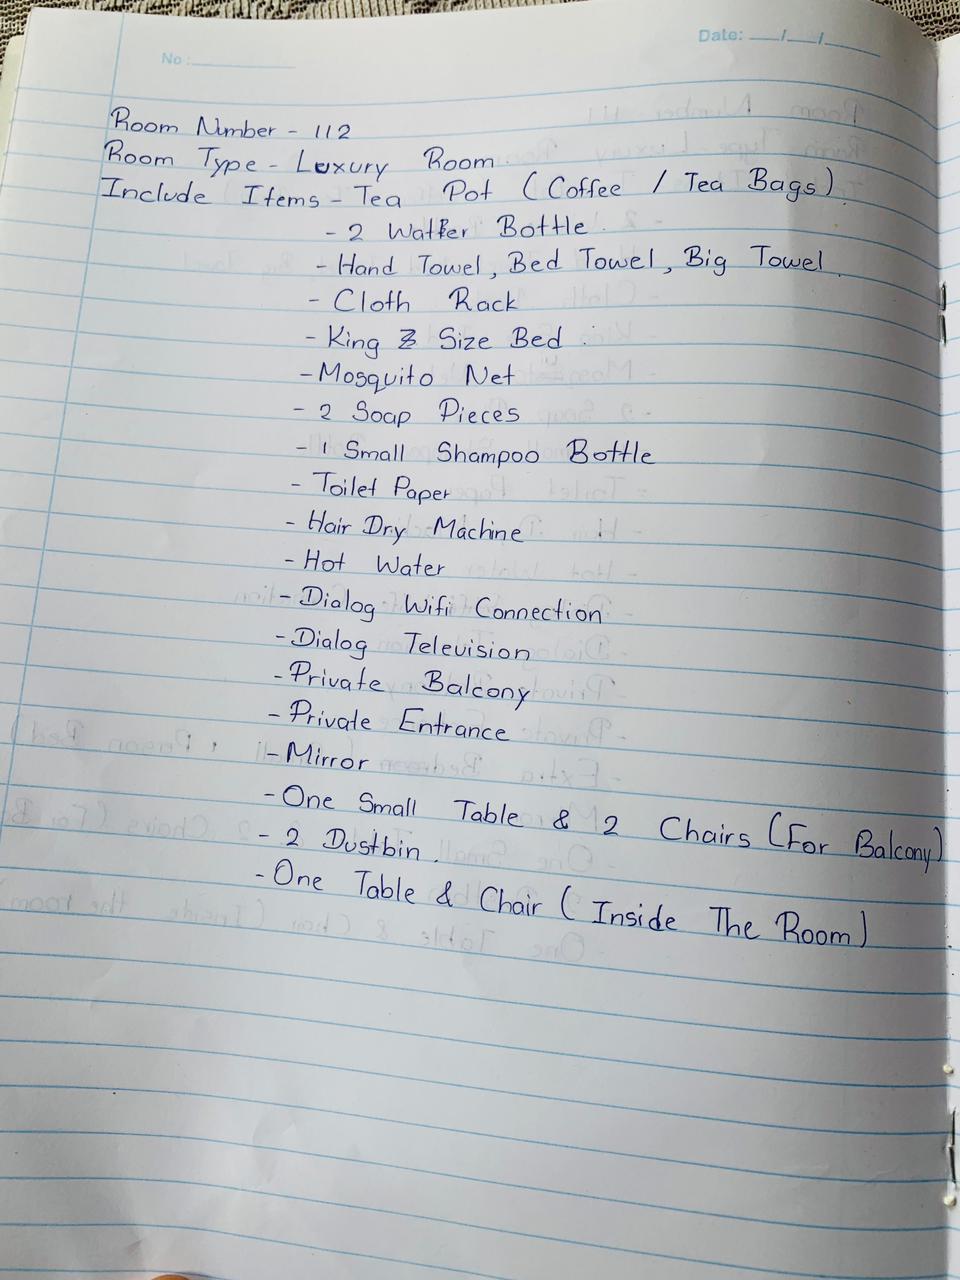 No :
Date: __/__/__
Room Number - 112
Room Type - Luxury Room
Include Items - Tea Pot (Coffee / Tea Bags)
- 2 Water Bottle.
- Hand Towel, Bed Towel, Big Towel.
- Cloth Rack
- King Size Bed.
- Mosquito Net
- 2 Soap Pieces
- 1 Small Shampoo Bottle
- Toilet Paper
- Hair Dry Machine
- Hot Water
- Dialog Wifi Connection
- Dialog Television
- Private Balcony
- Private Entrance
- Mirror
- One Small Table & 2 Chairs (For Balcony)
- 2 Dustbin.
- One Table & Chair (Inside The Room)